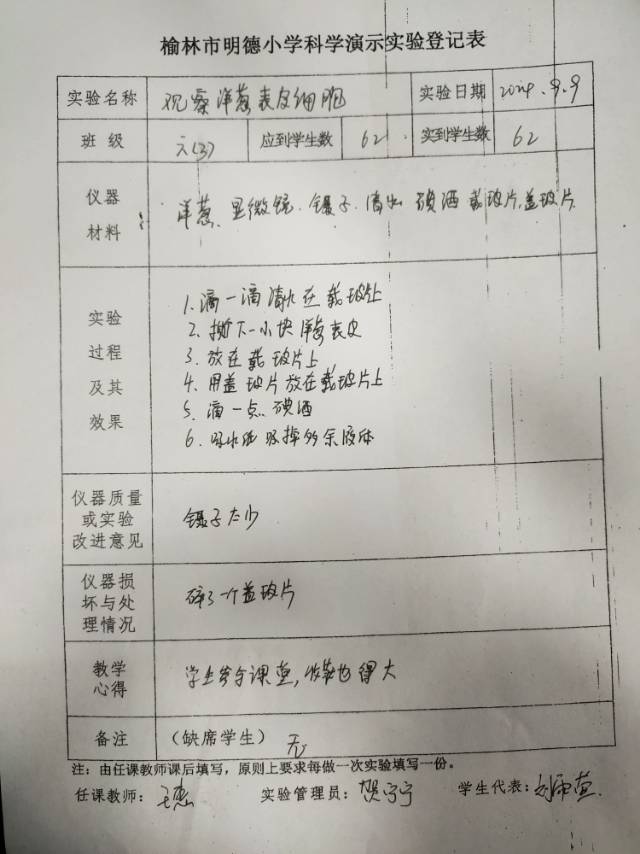 榆林市明德小学科学演示实验登记表
实验名称 观察洋葱表皮细胞 实验日期 2024.9.9
班 级 六(3) 应到学生数 62 实到学生数 62
仪器
材料 洋葱、显微镜、镊子、清水 碘酒 载玻片、盖玻片
实验
过程
及其
效果
1、滴一滴清水在载玻片上
2、撕下一小块洋葱表皮
3、放在载玻片上
4、用盖玻片放在载玻片上
5、滴一点碘酒
6、吸水纸吸掉多余液体
仪器质量
或实验
改进意见
镊子太少
仪器损
坏与处
理情况
碎了一个盖玻片
教学
心得
学生参与课堂,收获也得大
备注 (缺席学生) 无
注:由任课教师课后填写,原则上要求每做一次实验填写一份。
任课教师: 实验管理员:贺宁宁 学生代表: